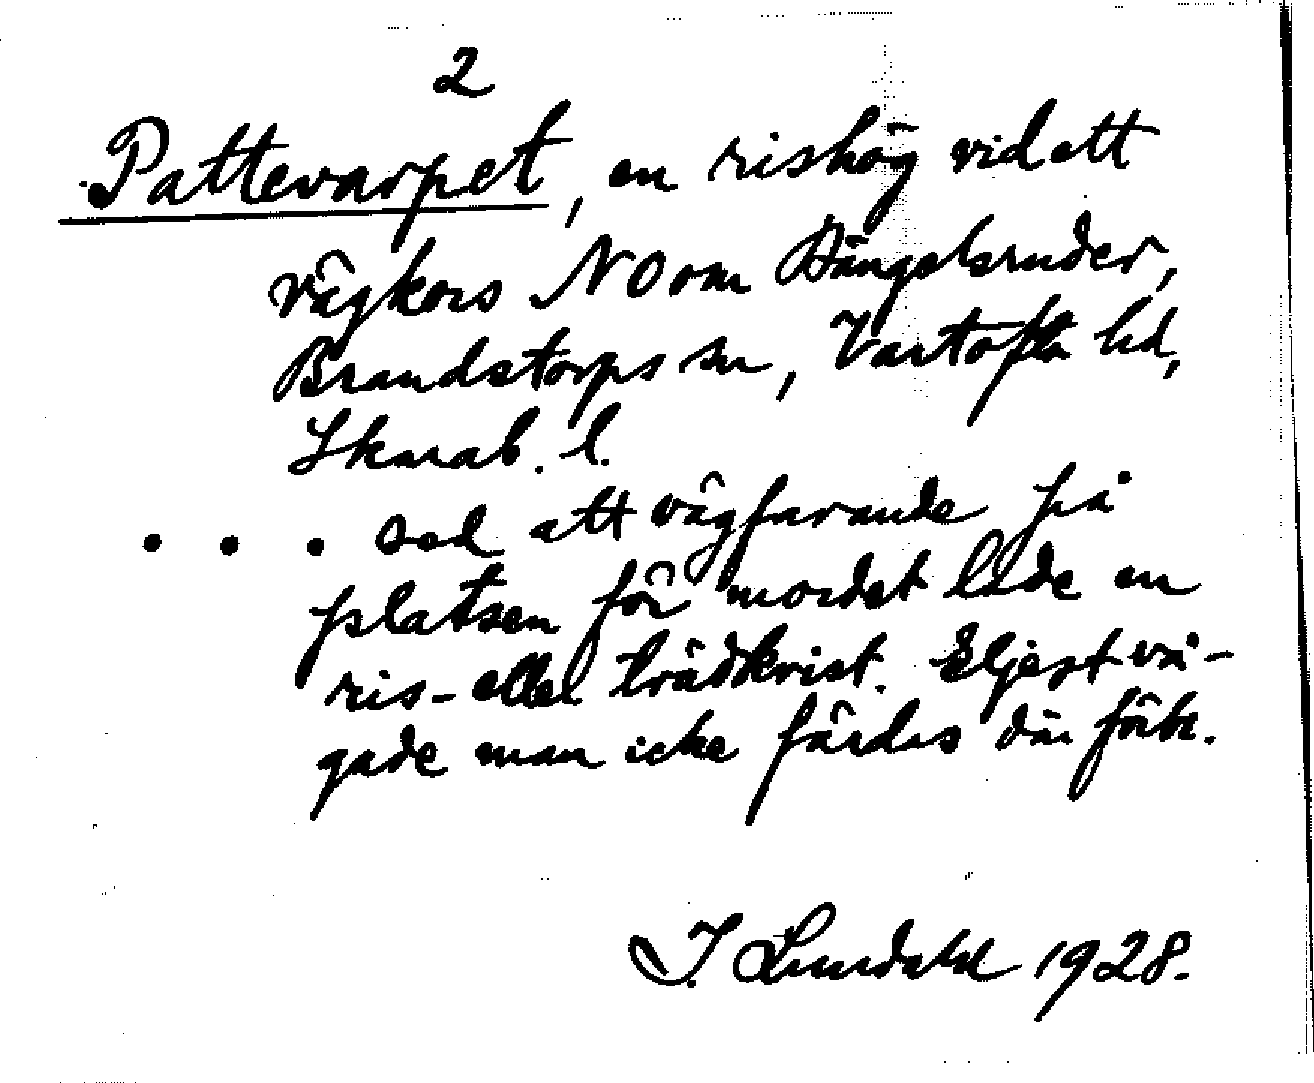 2
Pattevarpet, en rishög vid ett
vägkors NO om Hängelsruder,
Brandstorps sn, Vartofta hd,
Skarab. l.
. . . sed att vägfarande på
platsen för mordet lade en
ris- eller trädkvist. Eljest vå-
gade man icke färdas där förbi.
I. Lundahl 1928.